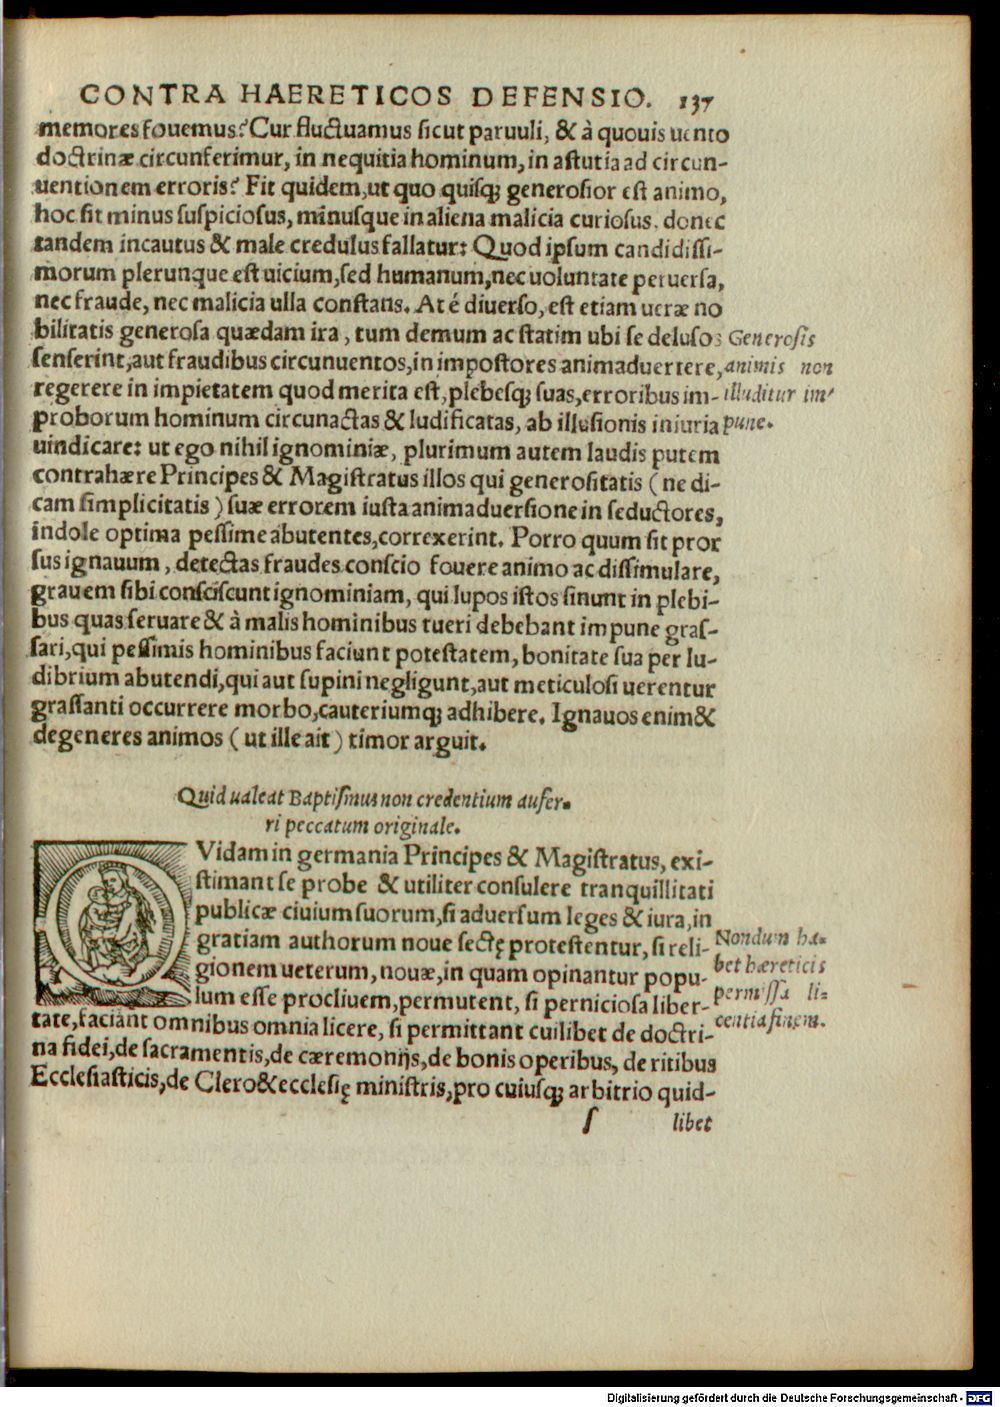 CONTRA HAERETICOS DEFENSIO. 137
memores fouemus? Cur fluctuamus sicut paruuli, & à quouis uento
doctrinæ circunferimur, in nequitia hominum, in astutia ad circun-
uentionem erroris? Fit quidem, ut quo quisqȝ generosior est animo,
hoc sit minus suspiciosus, minusque in aliena malicia curiosus. donec
tandem incautus & male credulus fallatur: Quod ipsum candidissi-
morum plerunque est uicium, sed humanum, nec uoluntate peruersa,
nec fraude, nec malicia ulla constans. At é diuerso, est etiam ueræ no
bilitatis generosa quædam ira, tum demum ac statim ubi se delusos
senserint, aut fraudibus circunuentos, in impostores animaduertere,
regerere in impietatem quod merita est, plebesqȝ suas, erroribus im-
proborum hominum circunactas & ludificatas, ab illusionis iniuria
uindicare: ut ego nihil ignominiæ, plurimum autem laudis putem
contrahære Principes & Magistratus illos qui generositatis (ne di-
cam simplicitatis) suæ errorem iusta animaduersione in seductores,
indole optima pessime abutentes, correxerint. Porro quum sit pror
sus ignauum, detectas fraudes conscio fouere animo ac dissimulare,
grauem sibi consciscunt ignominiam, qui lupos istos sinunt in plebi-
bus quas seruare & à malis hominibus tueri debebant impune gras-
sari, qui pessimis hominibus faciunt potestatem, bonitate sua per lu-
dibrium abutendi, qui aut supini negligunt, aut meticulosi uerentur
grassanti occurrere morbo, cauteriumqȝ adhibere. Ignauos enim &
degeneres animos (ut ille ait) timor arguit.
Generosis
animis non
illuditur im-
pune.
Quid ualeat Baptismus non credentium aufer-
ri peccatum originale.
QVidam in germania Principes & Magistratus, exi-
stimant se probe & utiliter consulere tranquillitati
publicæ ciuium suorum, si aduersum leges & iura, in
gratiam authorum noue sectę protestentur, si reli-
gionem ueterum, nouæ, in quam opinantur popu-
lum esse procliuem, permutent, si perniciosa liber-
tate, faciant omnibus omnia licere, si permittant cuilibet de doctri-
na fidei, de sacramentis, de cæremonijs, de bonis operibus, de ritibus
Ecclesiasticis, de Clero & ecclesię ministris, pro cuiusqȝ arbitrio quid-
Nondum ha-
bet hæreticis
permissa li-
centia finem.
s libet
Digitalisierung gefördert durch die Deutsche Forschungsgemeinschaft - DFG